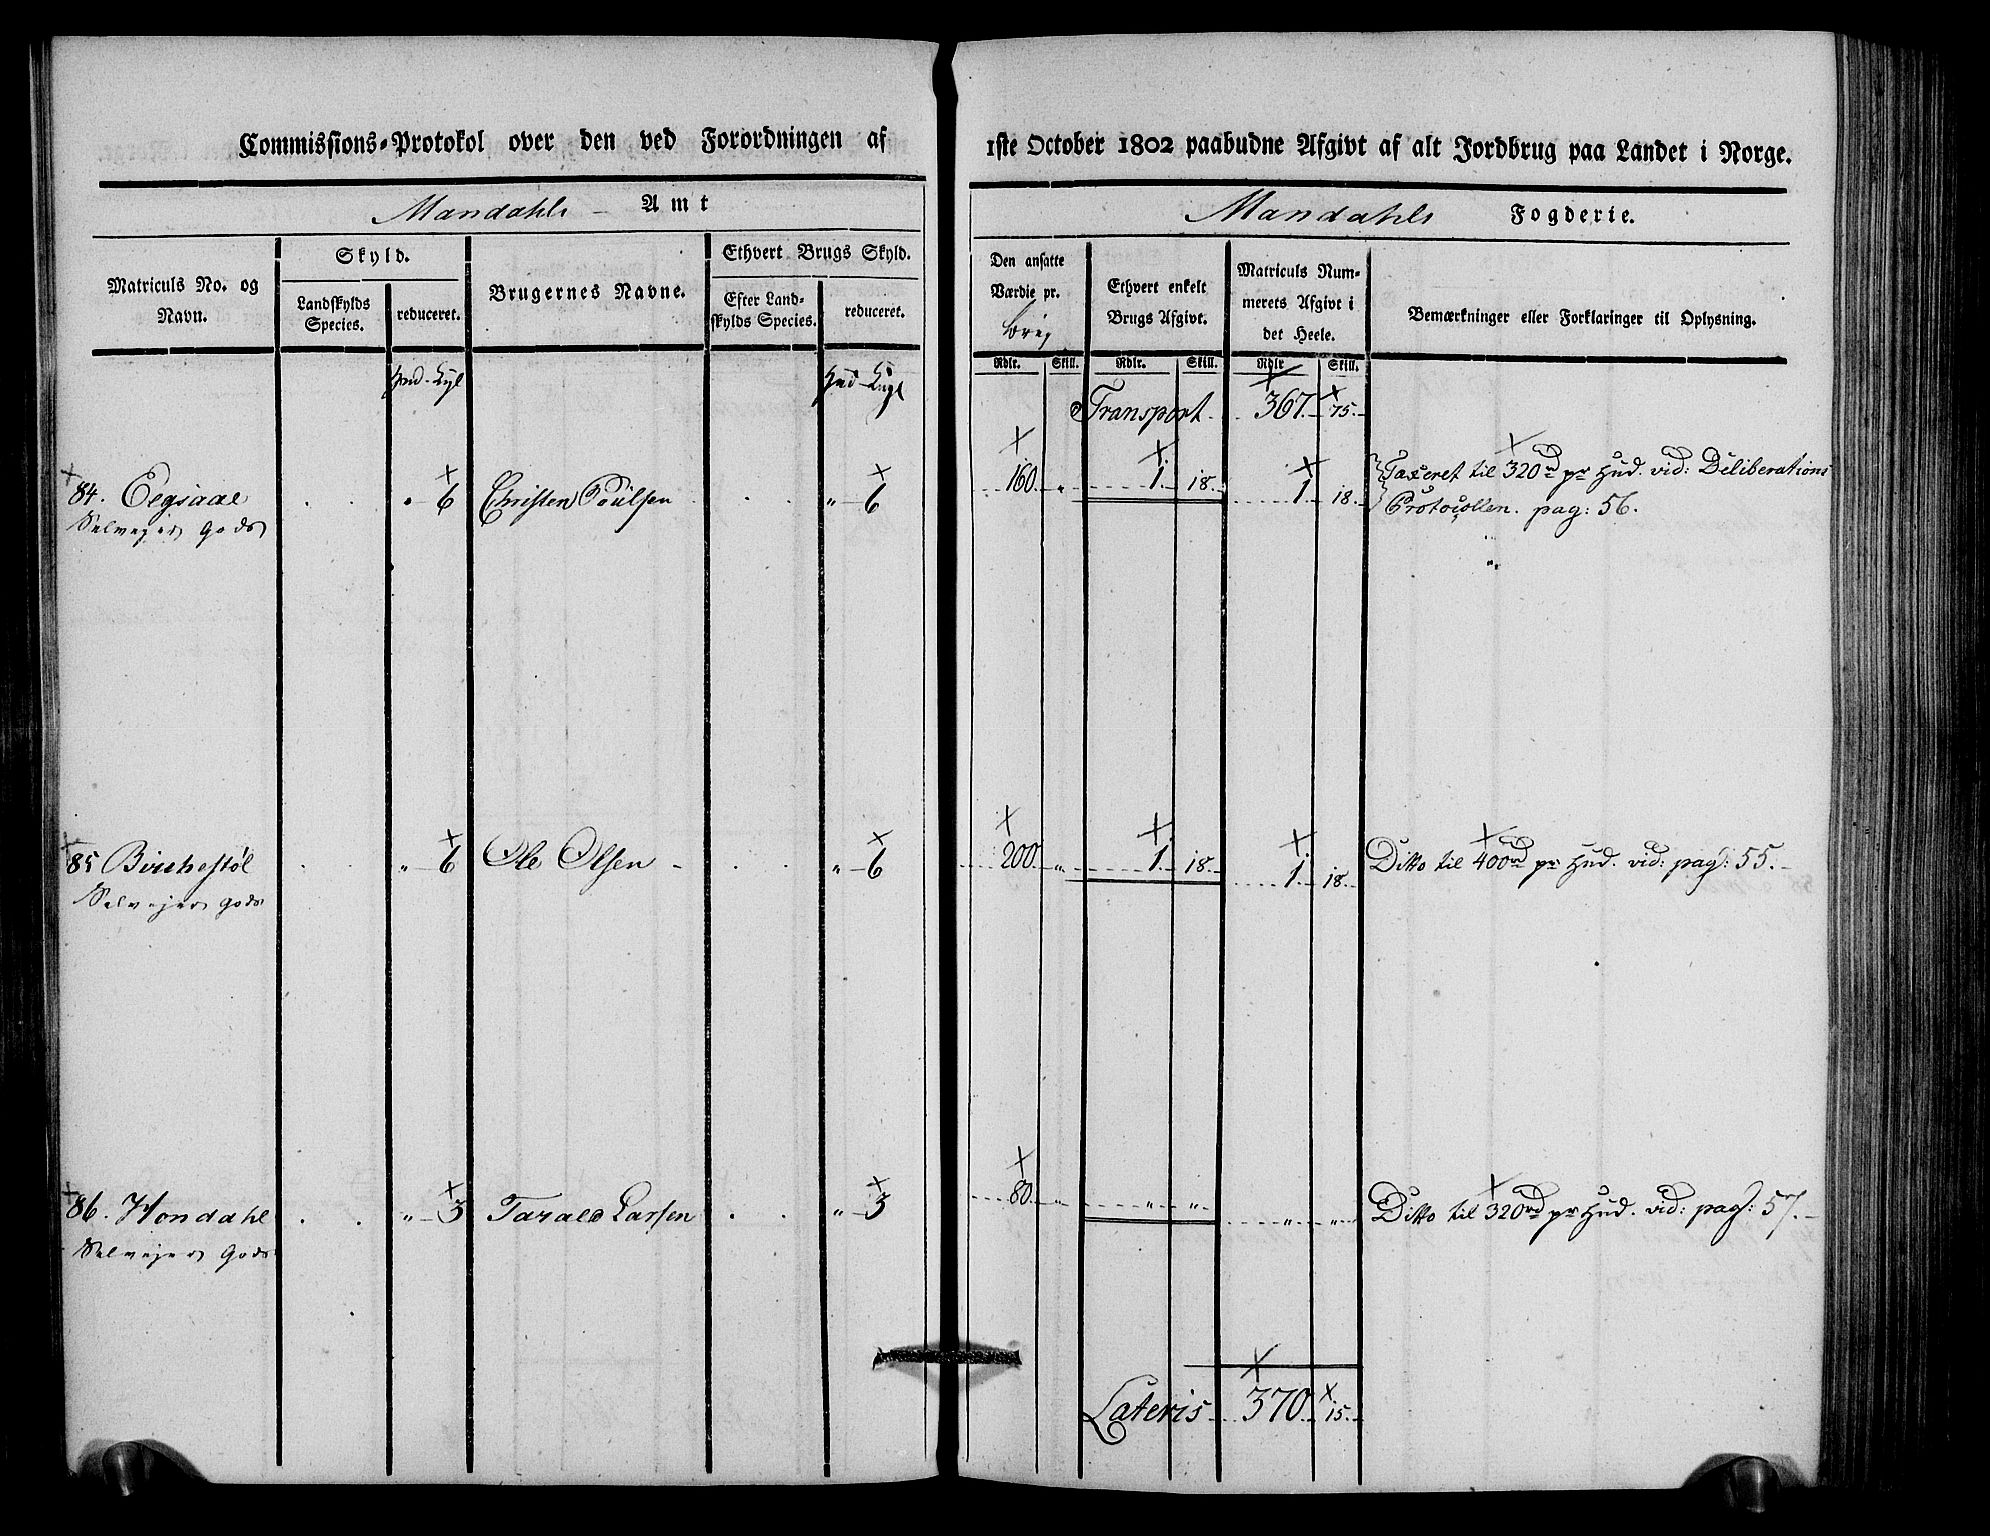 Commissions-Protokol over den ved Forordningen af 1ste October 1802 paabudne Afgivt af alt Jordbrug paa Landet i Norge.
Mandahls Amt Mandahls Fogderie.
Matriculs No. og Navn. Skyld. Landskylds Species. reduceret. Brugernes Navne. Ethvert Brugs Skyld. Efter Landskylds Species. reduceret.
Den ansatte Værdie pr. Ethvert enkelt Brugs Afgivt. Matriculs Nummerets Afgivt i det Heele. Bemærkninger eller Forklaringer til Oplysning.
Rdlr. Skill. Rdlr. Skill. Rdlr Skill.
Transport 367. 75.
84. Eegsaae " 6 Christen Poulsen " 6 160. " 1. 18. 1. 18. Taxeret til 320rd pr Hud. vid: Deliberations
Selvejer Gods Protocollen. pag: 56.
85 Birchestøl " 6 Ole Olsen " 6 200. " 1. 18. 1. 18. Ditto til 400rd pr Hud. vid: pag: 55.
Selvejer Gods
86. Hondahl " 3 Tarald Larsen " 3 80. " " " " " Ditto til 320rd pr Hud. vid: pag: 57.
Selvejer Gods
Lateris 370. 15.